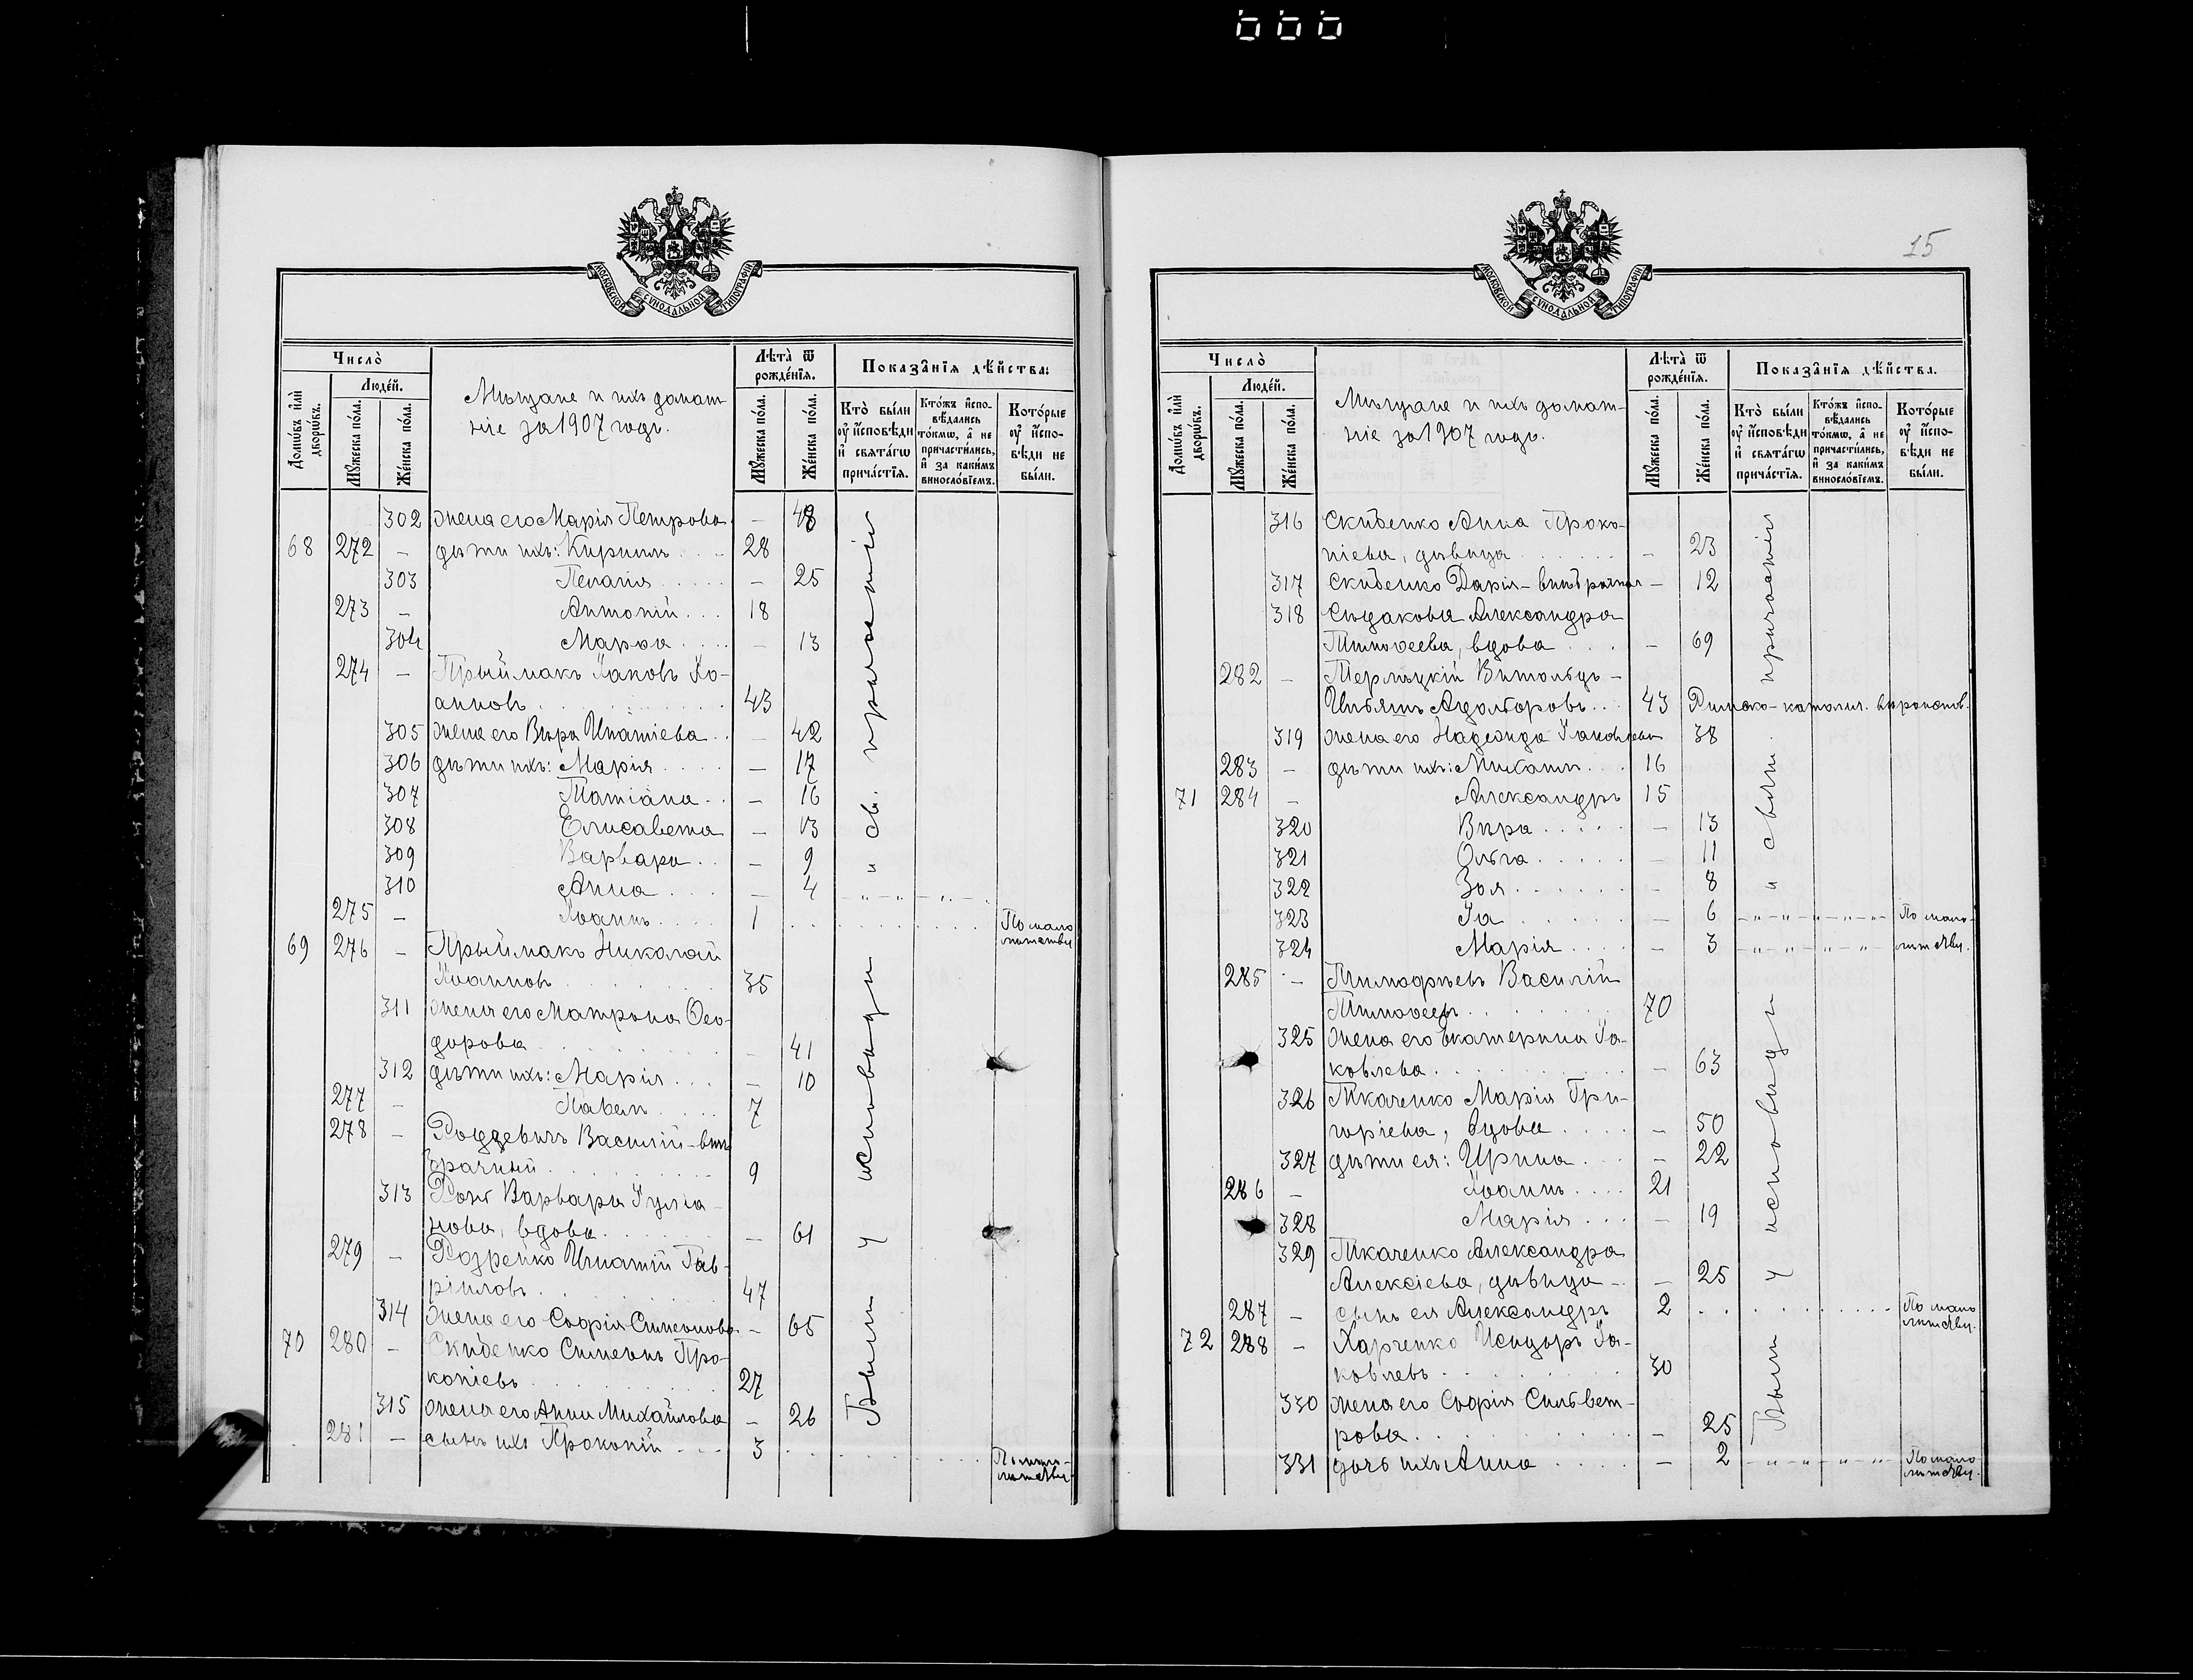 МОСКОВСКОЙ СѴНОДАЛЬНОЙ ТИПОГРАФІИ
Число̀
Лѣта̀ ѿ рожде́нїя.
Показа̑нїя дѣ́йства:
Домѡ́въ и҆лѝ дворѡ́въ.
Люде́й.
Мꙋ́жеска по́ла.
Же́нска по́ла.
Мѣщане и ихъ домаш-
ніе за 1907 годъ.
Мꙋ́жеска по́ла.
Же́нска по́ла.
Кто̀ бы́ли оу҆ и҆сповѣ́ди и҆ свята́гѡ прича́стїя.
Кто́жъ и҆споᲂвѣ́дались то́кмѡ, а҆ не причасти́лись, и҆ за каки́мъ винослᲂ́вїемъ.
Кото́рые оу҆ и҆спо- вѣ́ди не бы́ли.
302 жена его Марія Петрова - 48
68 272 - дѣти ихъ: Кириллъ 28
303 Пелагія - 25
273 - Антоній 18
304 Марѳа - 13
274 - Прыймакъ Іаковъ Іо-
анновъ 43
305 жена его Вѣра Игнатіева - 42
306 дѣти ихъ: Марія - 17
307 Татіана - 16
308 Елисавета - 13
309 Варвара - 9
310 Анна - 4 - " - " - " -
275 - Іоаннъ 1 По мало
лѣтству
69 276 - Прыймакъ Николай
Іоанновъ 35
311 жена его Матрона Ѳео-
дорова - 41
312 дѣти ихъ: Марія - 10
277 - Павелъ 7
278 - Василій - внѣ
брачный 9
313 Варвара
вдова - 61
279 - Игнатій Гав-
ріиловъ 47
314 жена его Софія Симеонова - 65
70 280 - Скиденко Симеонъ Про-
копіевъ 27
315 жена его Анна Михайлова - 26
281 - сынъ ихъ Прокопій 3 По мало-
лѣтству.
Были у исповѣди и св. причастія
15
МОСКОВСКОЙ СѴНОДАЛЬНОЙ ТИПОГРАФІИ
Число̀
Лѣта̀ ѿ рожде́нїя.
Показа̑нїя дѣ́йства.
Домѡ́въ и҆лѝ дворѡ́въ.
Люде́й.
Мꙋ́жеска по́ла.
Же́нска по́ла.
Мѣщане и ихъ домаш-
ніе за 1907 годъ.
Мꙋ́жеска по́ла.
Же́нска по́ла.
Кто̀ бы́ли оу҆ и҆сповѣ́ди и҆ свята́гѡ прича́стїя.
Кто́жъ и҆спо- вѣ́дались то́кмѡ, а҆ не причасти́лись, и҆ за каки́мъ виносло́вїемъ.
Кото́рые оу҆ и҆спо- вѣ́ди не бы́ли.
316 Скиденко Анна Проко-
піева, дѣвица - 23
317 Скиденко Дарія - внѣбрачная - 12
318 Судакова Александра
Тимоѳеева, вдова - 69
282 - Терлецкій Витольдъ -
Адольфовъ 43 Римско-католич. вѣроисповѣд.
319 жена его Надежда Іаковлева 38
283 - дѣти ихъ: Михаилъ 16
71 284 - Александръ 15
320 Вѣра - 13
321 Ольга - 11
322 Зоя - 8
323 Іа - 6 - " - " - " - " - По мало-
324 Марія - 3 - " - " - " - " - лѣтству.
285 - Тимофѣевъ Василій
Тимоѳеевъ 70
325 жена его Екатерина Іа-
ковлева - 63
326 Ткаченко Марія Гри-
горіева, вдова - 50
327 дѣти ея: Ирина - 22
286 - Іоаннъ 21
328 Марія - 19
329 Ткаченко Александра
Алексіева, дѣвица - 25
287 - сынъ ея Александръ 2 По мало
лѣтству.
72 288 - Харченко Исидоръ Іа-
ковлевъ 30
330 жена его Софія Сильвест-
рова - 25
331 дочь ихъ Анна - 2 - " - " - " - " - По мало
лѣтству.
Были у исповѣди и святы. причастія